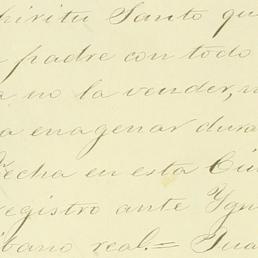 piritu Santo qu
padre con todo
a no la vender, n
a enagenar dura
fecha en esta Ciu
registro ante Ygn
ibano real.= Jua